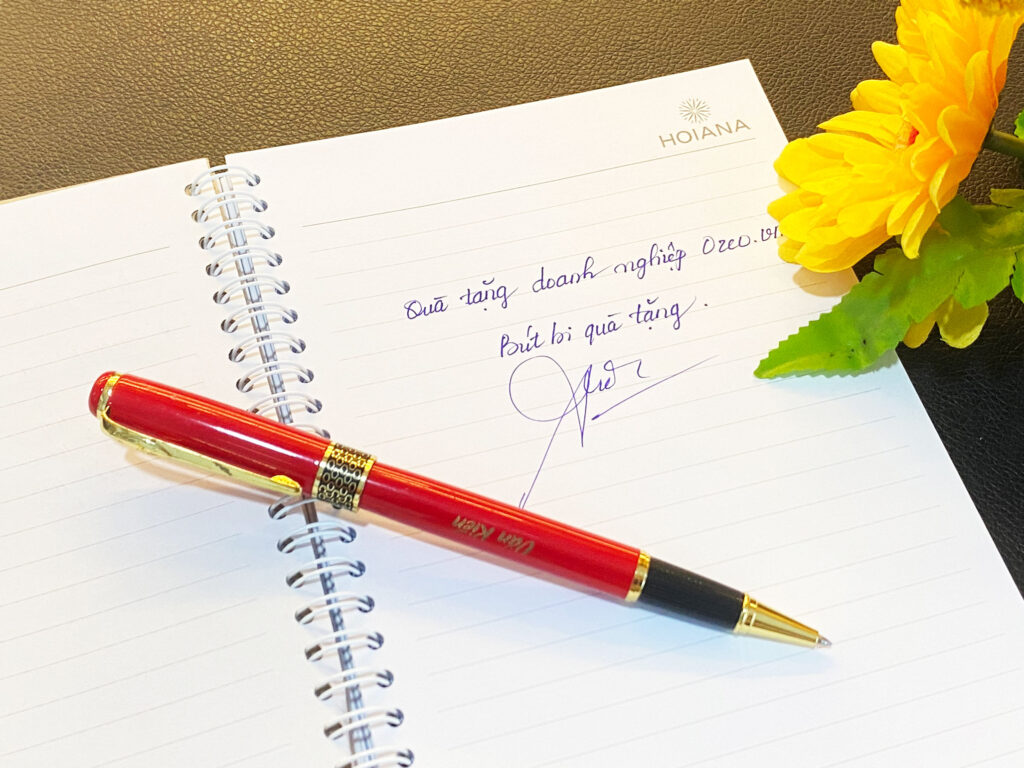 HOIANA
Quà tặng doanh nghiệp Ozeo.vn
Bút bi quà tặng.
Văn Kiên